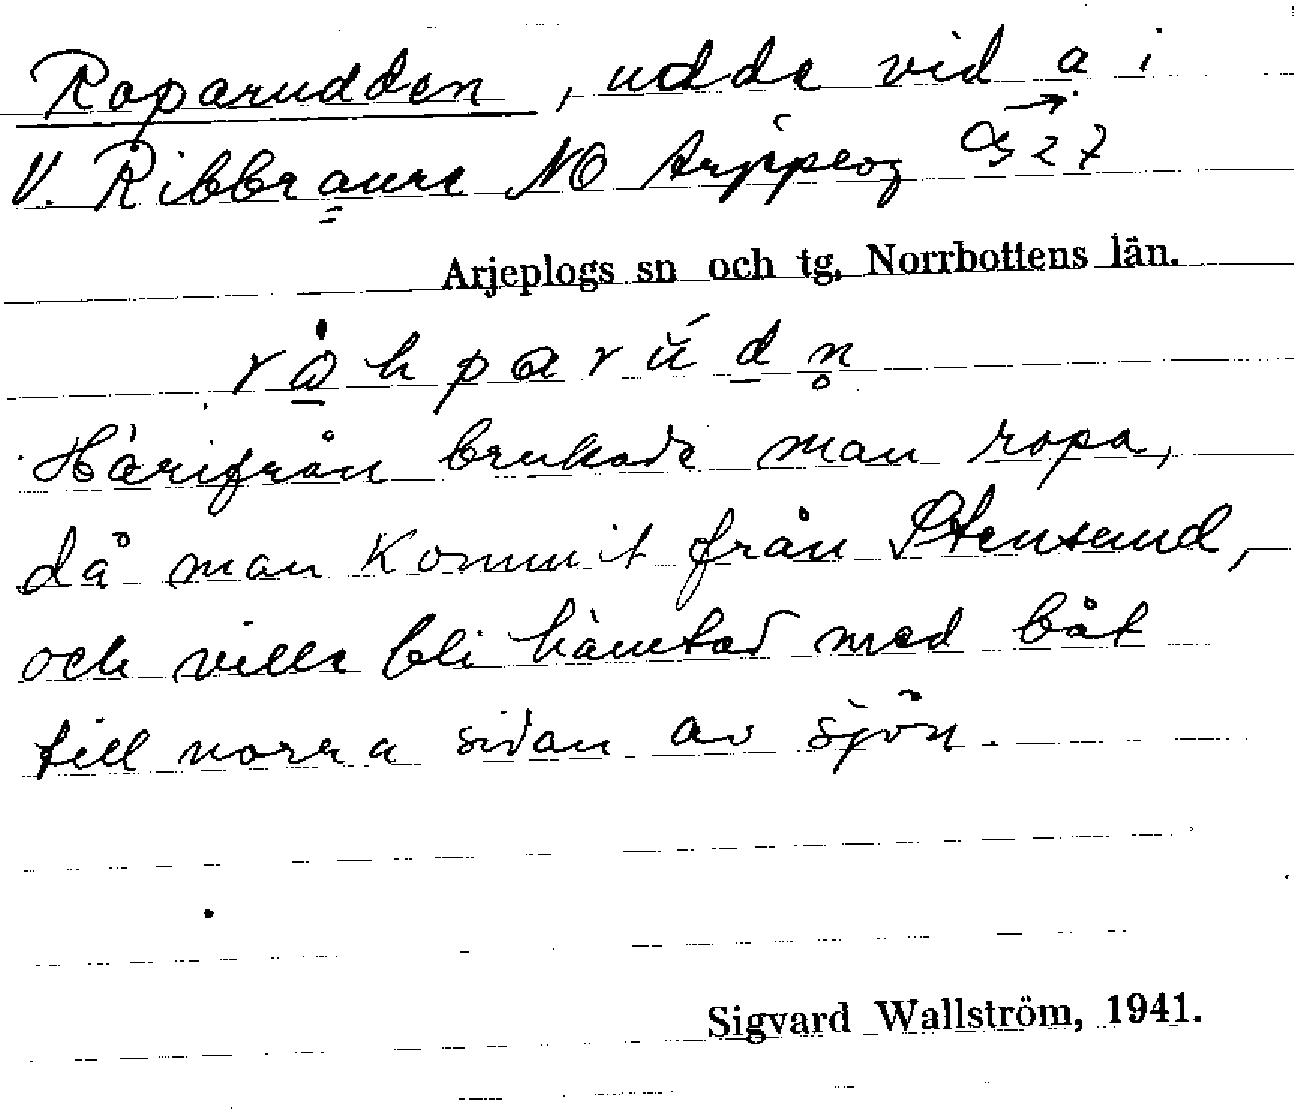 Roparudden, udde vid a i
V. Ribbraure NO Arjeplog G 27
Arjeplogs sn och tg, Norrbottens län.
Härifrån brukade man ropa,
då man kommit från Stensund,
och ville bli hämtad med båt
till norra sidan av sjön.
Sigvard Wallström, 1941.